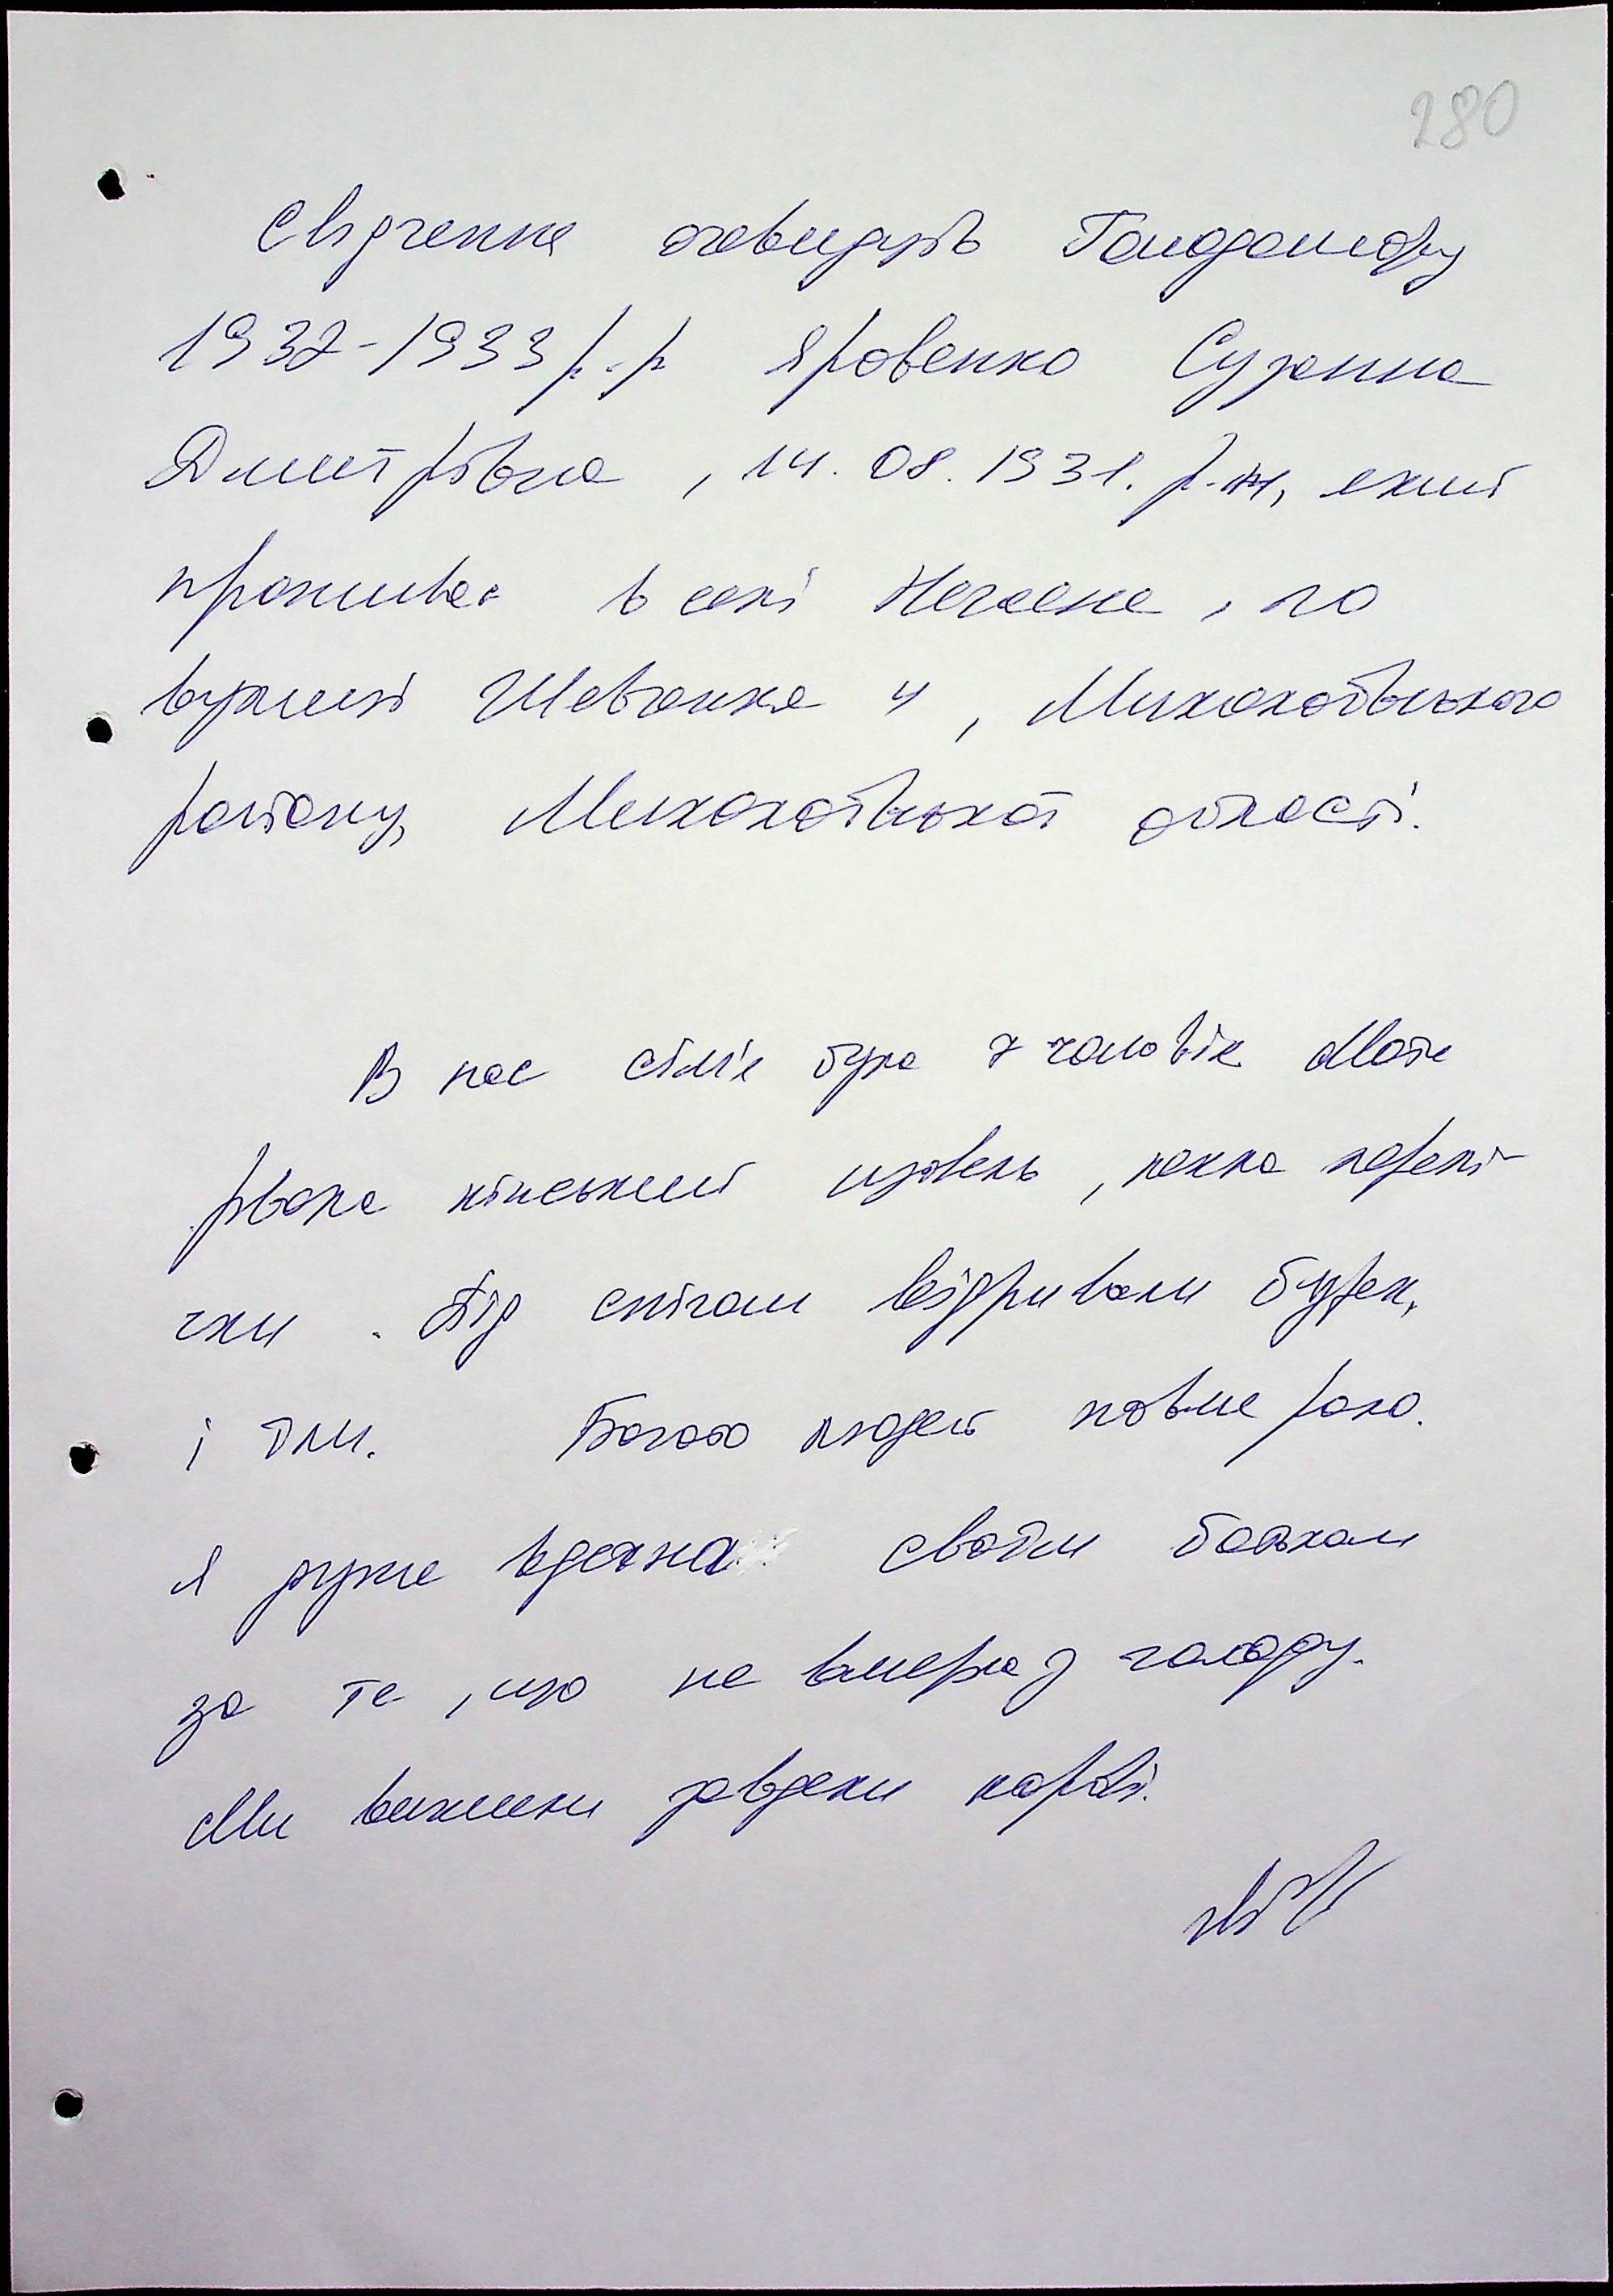 280
Свідчення очевидців Голодомору
1932-1933 р.р Яровенко Сузанна
Дмитрівна, 14.08.1931. р.н, який
проживає в селі Нечаяне, по
вулиці Шевченка 4, Миколаївського
району, Миколаївської області.
В нас сім'я була 7 чоловік Мати
рвала кінський щавель, пекла перепі-
чки. Під снігом відривали буряк,
і їли. Багато людей помирало.
Я дуже вдячна своїм батькам
за те, що не вмерла з голоду.
Ми вижили завдяки корові.